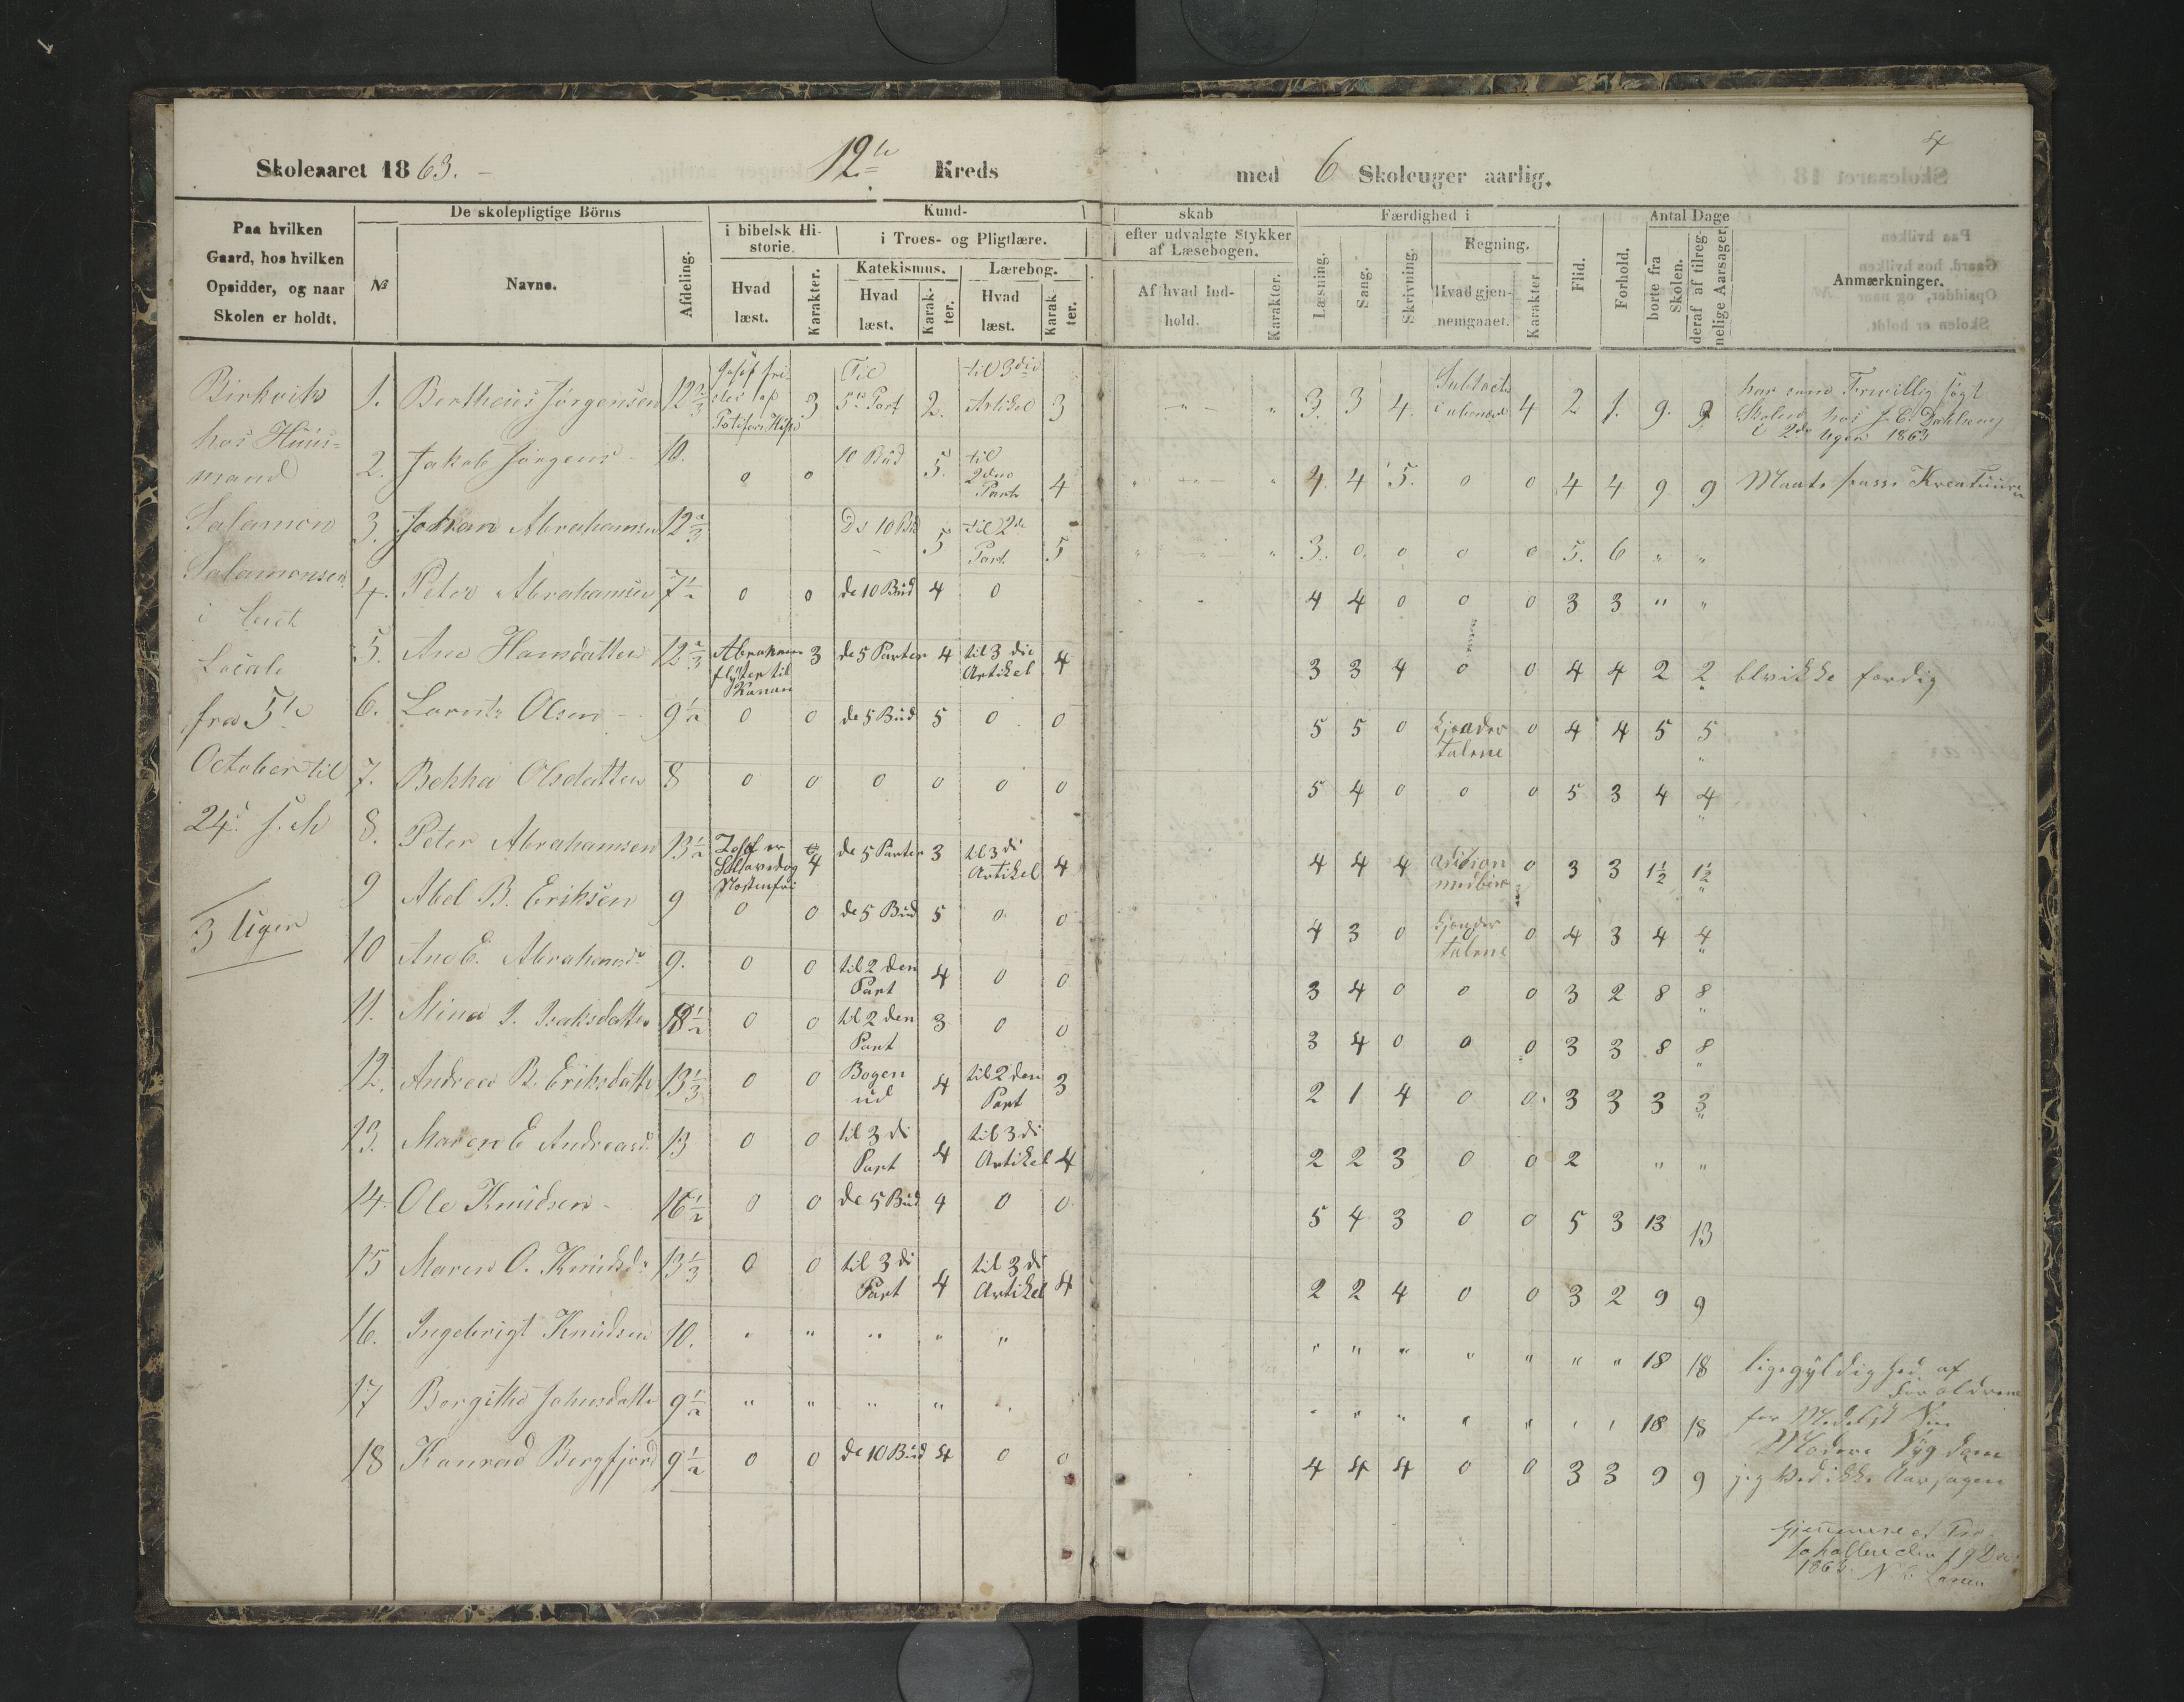 Skoleaaret 1863. -
12te Kreds
med 6 Skoleuger aarlig.
4
Paa hvilken Gaard, hos hvilken Opsidder, og naar Skolen er holdt.
De skolepligtige Börns
№
Navne.
Afdeling.
Kund-
i bibelsk Historie.
Hvad læst.
Karakter.
i Troes- og Pligtlære.
Katekismus.
Hvad læst.
Karakter.
Lærebog.
Hvad læst.
Karakter.
skab
efter udvalgte Stykker af Læsebogen.
Af hvad Indhold.
Karakter.
Færdighed i
Læsning.
Sang.
Skrivning.
Regning.
Hvad gjennemgaaet.
Karakter.
Flid.
Forhold.
Antal Dage
borte fra Skolen.
deraf af tilregnelige Aarsager.
Anmærkninger.
Birkvik
hos Huus=
mand
Salamon
Salamonsen
i leiet
Locale
fra 5te
October til
24d
3 Uger
1. Bertheus Jörgensen 12 2/3 3 Til 5te Part 2. til 3die Artikel 3 3. 3 4. 4 2 1. 9. 9 har som Frivillig sögt Skolen hos J. C. Dahlseng i 2de Uger 1863
2. Jakob Jörgens 10. 0 0 10 Bud 5. til 2den Part 4 4. 4 5. 0 0 4 4 9 9 Maate passe Kreature
3. Johan Abrahamsen 12 2/3 De 10 Bud 5 til 2de Part 5 3. 0. 0 0 0 5. 6 " "
4. Peter Abrahamsen 7 1/2 0 0 de 10 Bud 4 0 4 4 0 0 0 3 3 " "
5. Ane Hansdatter 12 2/3 Abraham flytter til Kanan 3 de 5 Parter 4 til 3die Artikel 4 3 3 4 0 0 4 4 2 2 blv ikke fordig
6. Lorents Olsen 9 1/2 0 0 de 5 Bud 5 0 0 5 5 0 kjender talene 0 4 4 5 5
7. Bekka Olsdatter 8 0 0 0 0 0 0 5 4 0 0 0 5 3 4 4
8. Peter Abrahamsen 13 1/2 4 de 5 Parter 3 til 3di Artikel 4 4 4 4 0 3 3 1 1/2 1 1/2
9 Abel B. Eriksen 9 0 0 de 5 Bud 5 0 0 4 3 0 kjender talene 0 4 3 4 4
10 Ane E. Abrahamsd 9. 0 0 til 2den Part 4 0 0 3 4 0 0 0 3 2 8 8
11. Mina I. Isaksdatter 0 0 til 2den Part 3 0 0 3 4 0 0 0 3 3 8 8
12. Andrea B. Eriksdatte 13 1/3 0 0 Bogen ud 4 til 2den Part 3 2 1 4 0 0. 3 3 3 3
13. Maren E Andreasd. 13 0 0 til 3di Part 4 til 3di Artikel 4 2 2 3 0 0 2 " "
14. Ole Knudsen 16 1/2 0 0 de 5 Bud 4 0 0 5 4 3 0 0 5 3 13 13
15 Maren O. Knudsd. 13 1/3 0 0 til 3di Part 4 til 3di Artikel 4 2 2 4 0 0 3 2 9 9
16. Ingebrigt Knudsen 10. " " " " " " " " " " " " 18 18 ligegyldighed af foraldrene
17 Bergithe Johnsdatte 9 1/2 " " " " " " " " " " 18 18 for Medelst Sin Moders Sygdom
18 Konrad Bergfjord 9 1/2 0 0 de 10 Bud 4 0 0 4 4 4 0 0 3 3 9 9 jeg Ved ikke Aarsagen